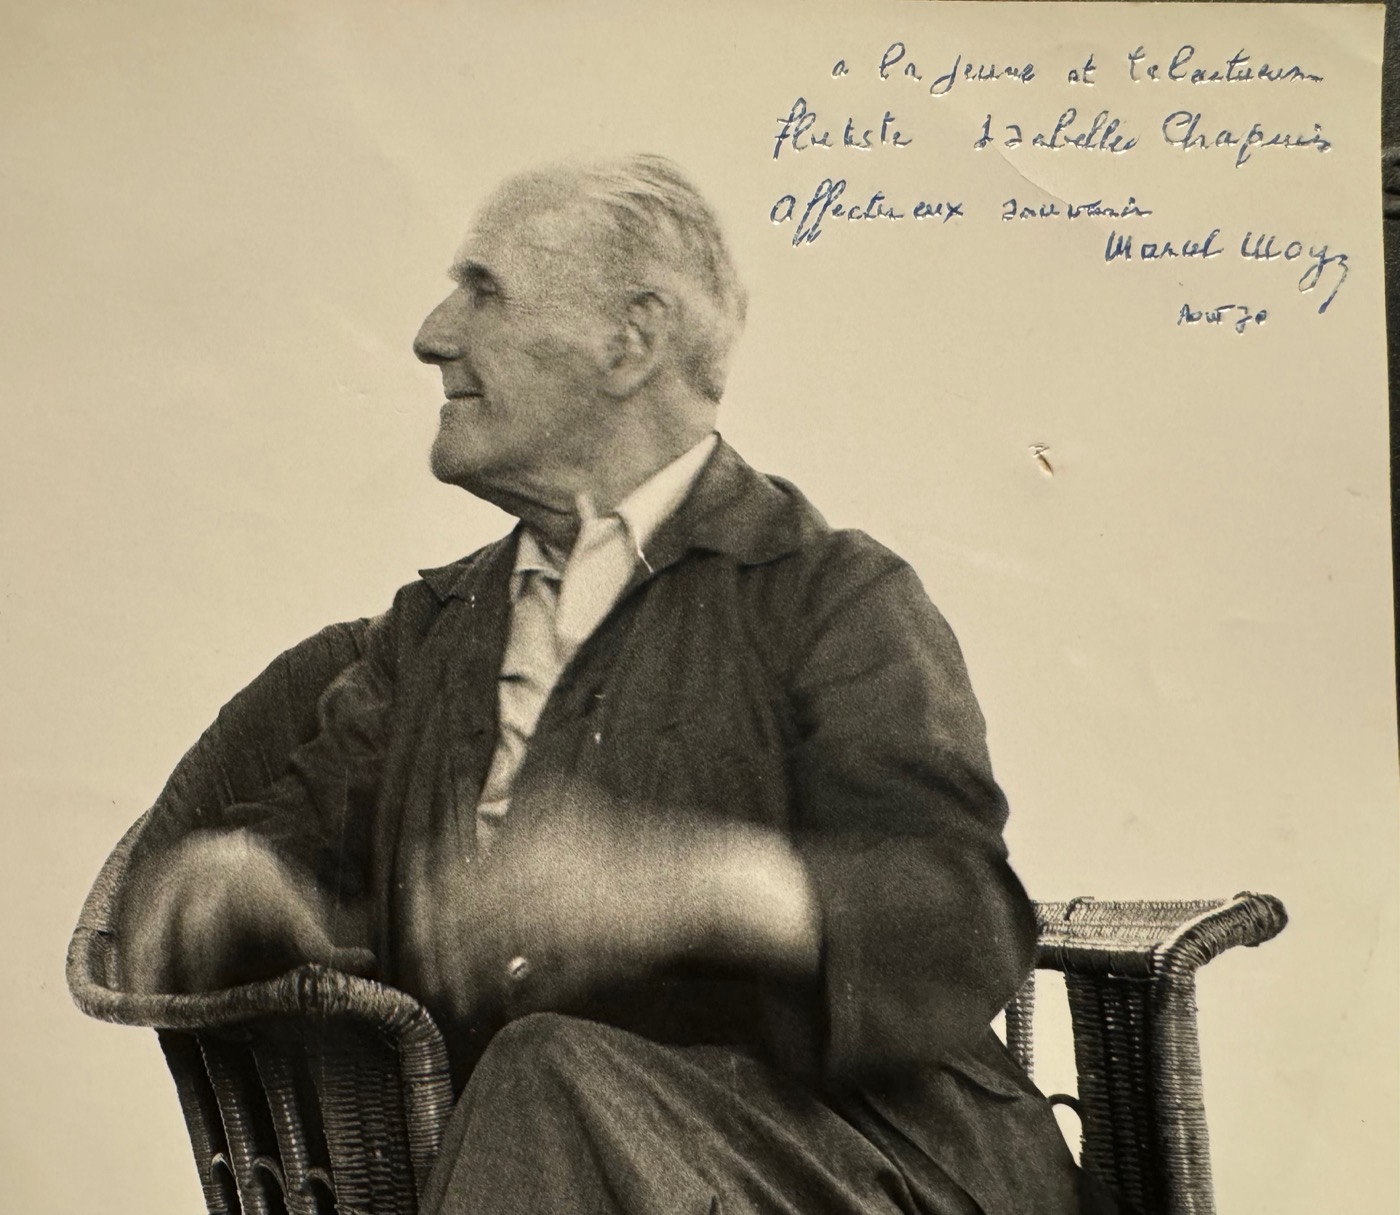 a la jeune et talentueuse
flutiste Isabelle Chapuis
affectueux souvenir
Marcel Moyse
Aout 70